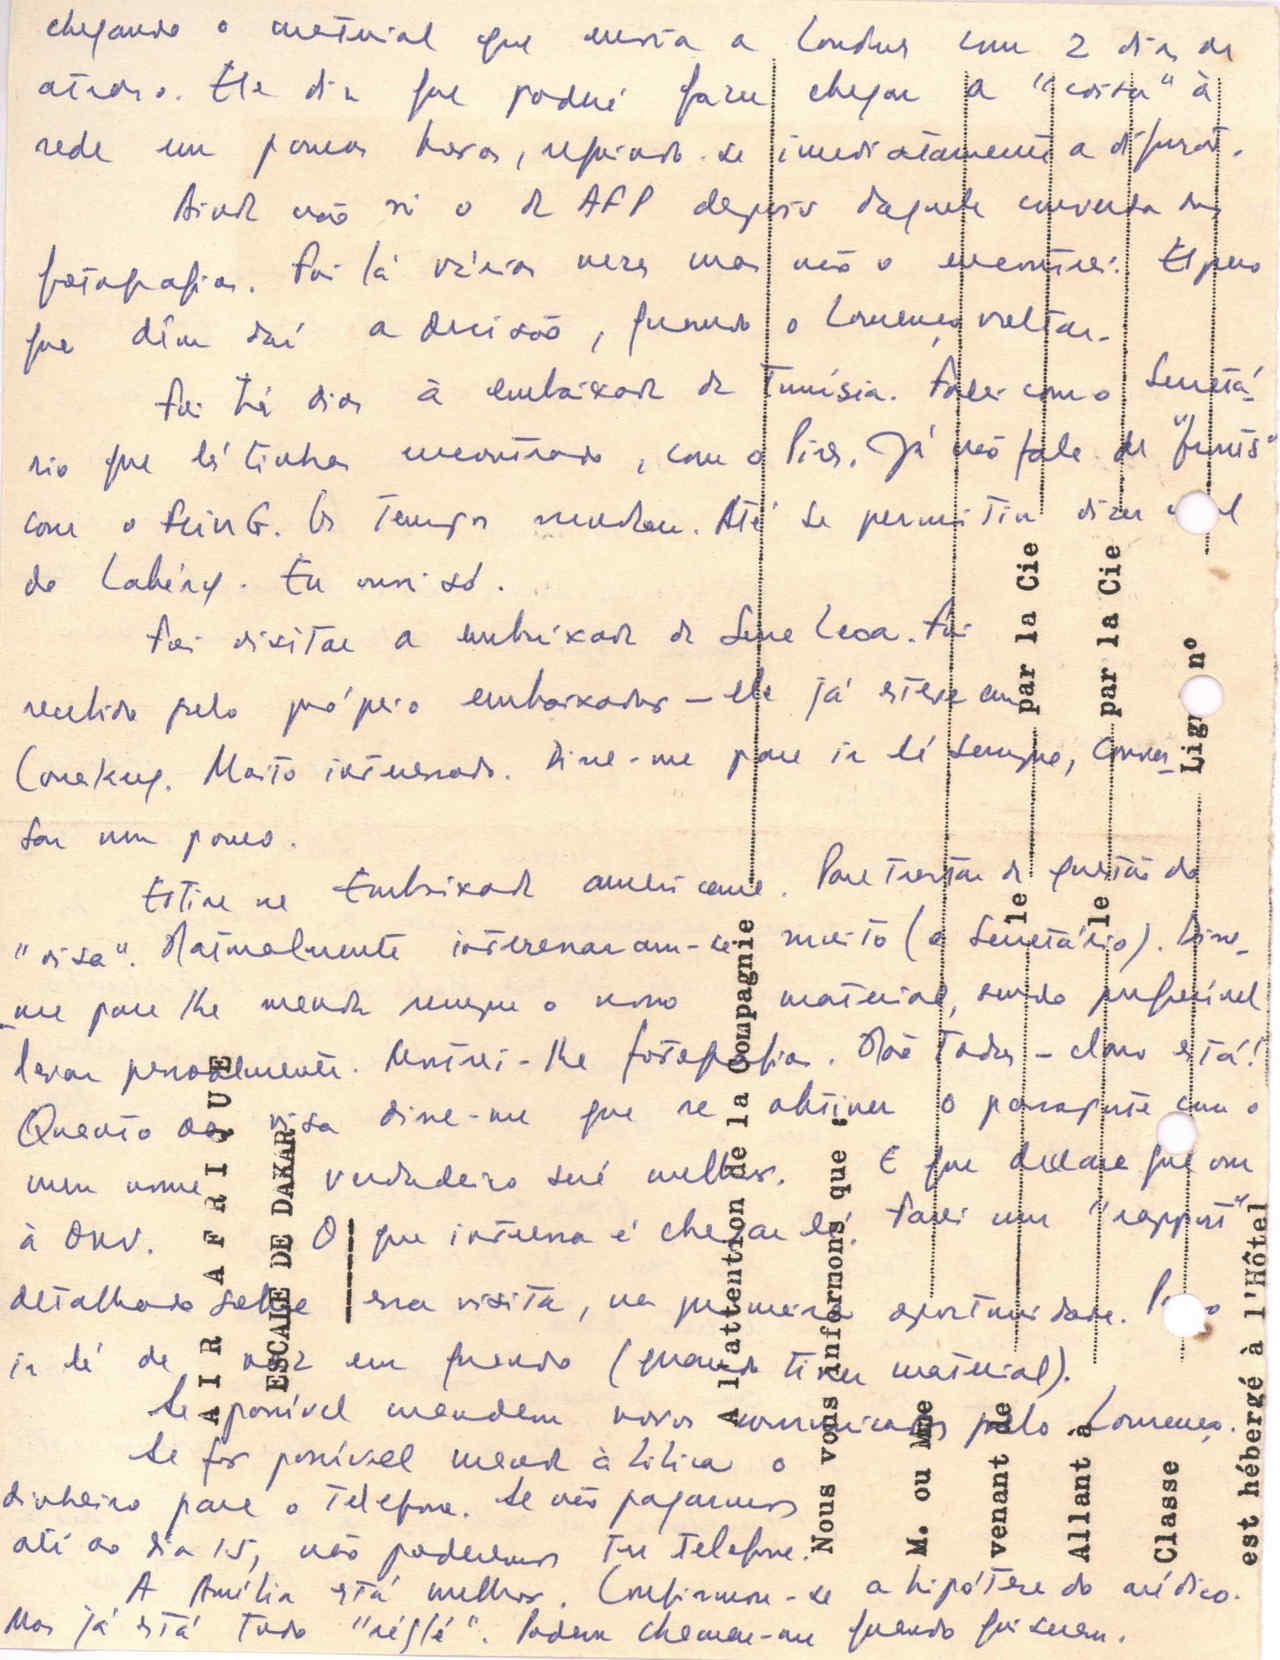 chegando o material que envia a Londres com 2 dias de
atraso. Ele diz que poderá fazer chegar a "coisa" à
rede em poucas horas, seguindo-se imediatamente a difusão.
Ainda não vi o da AFP depois daquela conversa das
fotografias. Fui lá várias vezes mas não o encontrei. Espero
que dêm daí a decisão, quando o Lourenço voltar.
Fui há dias à embaixada da Tunísia. Falei com o Secretá-
rio que lá tinha encontrado, com o Pires. Já não fala de "
com o FLING. Os tempos mudam. Até se permitiu dizer mal
do Labéry. Eu ouvi só.
Fui visitar a embaixada de Serra Leoa. Fui
recebido pelo próprio embaixador — ele já esteve em
Conakry. Muito interessado. Disse-me para ir lá sempre, conver-
sar um pouco.
Estive na Embaixada americana. Para tratar da questão do
"visa". Naturalmente interessaram-se muito (o Secretário). Disse-
-me para lhe mandar sempre o nosso material, sendo preferível
levar pessoalmente. Mostrei-lhe fotografias. Não todas — claro está!
Quanto ao visa disse-me que se obtiver o passaporte com o
meu nome verdadeiro será melhor. E que declare que vou
à ONU. O que interessa é chegar lá. Farei um "rapport"
detalhado sobre essa visita, na primeira oportunidade. Penso
ir lá de vez em quando (quando tiver material).
Se possível mandem novos comunicados pelo Lourenço.
Se for possível manda à Lilica o
dinheiro para o telefone. Se não pagarmos
até ao dia 15, não poderemos ter telefone.
A Amélia está melhor. Confirmou-se a hipótese do médico.
Mas já está tudo "réglé". Podem chamar-me quando quiserem.
AIR AFRIQUE
ESCALE DE DAKAR
A l'attention de la Compagnie
Nous vous informons que :
M. ou Mme
venant de le par la Cie
Allant à le par la Cie
Classe Lig nº
est hébergé à l'Hôtel